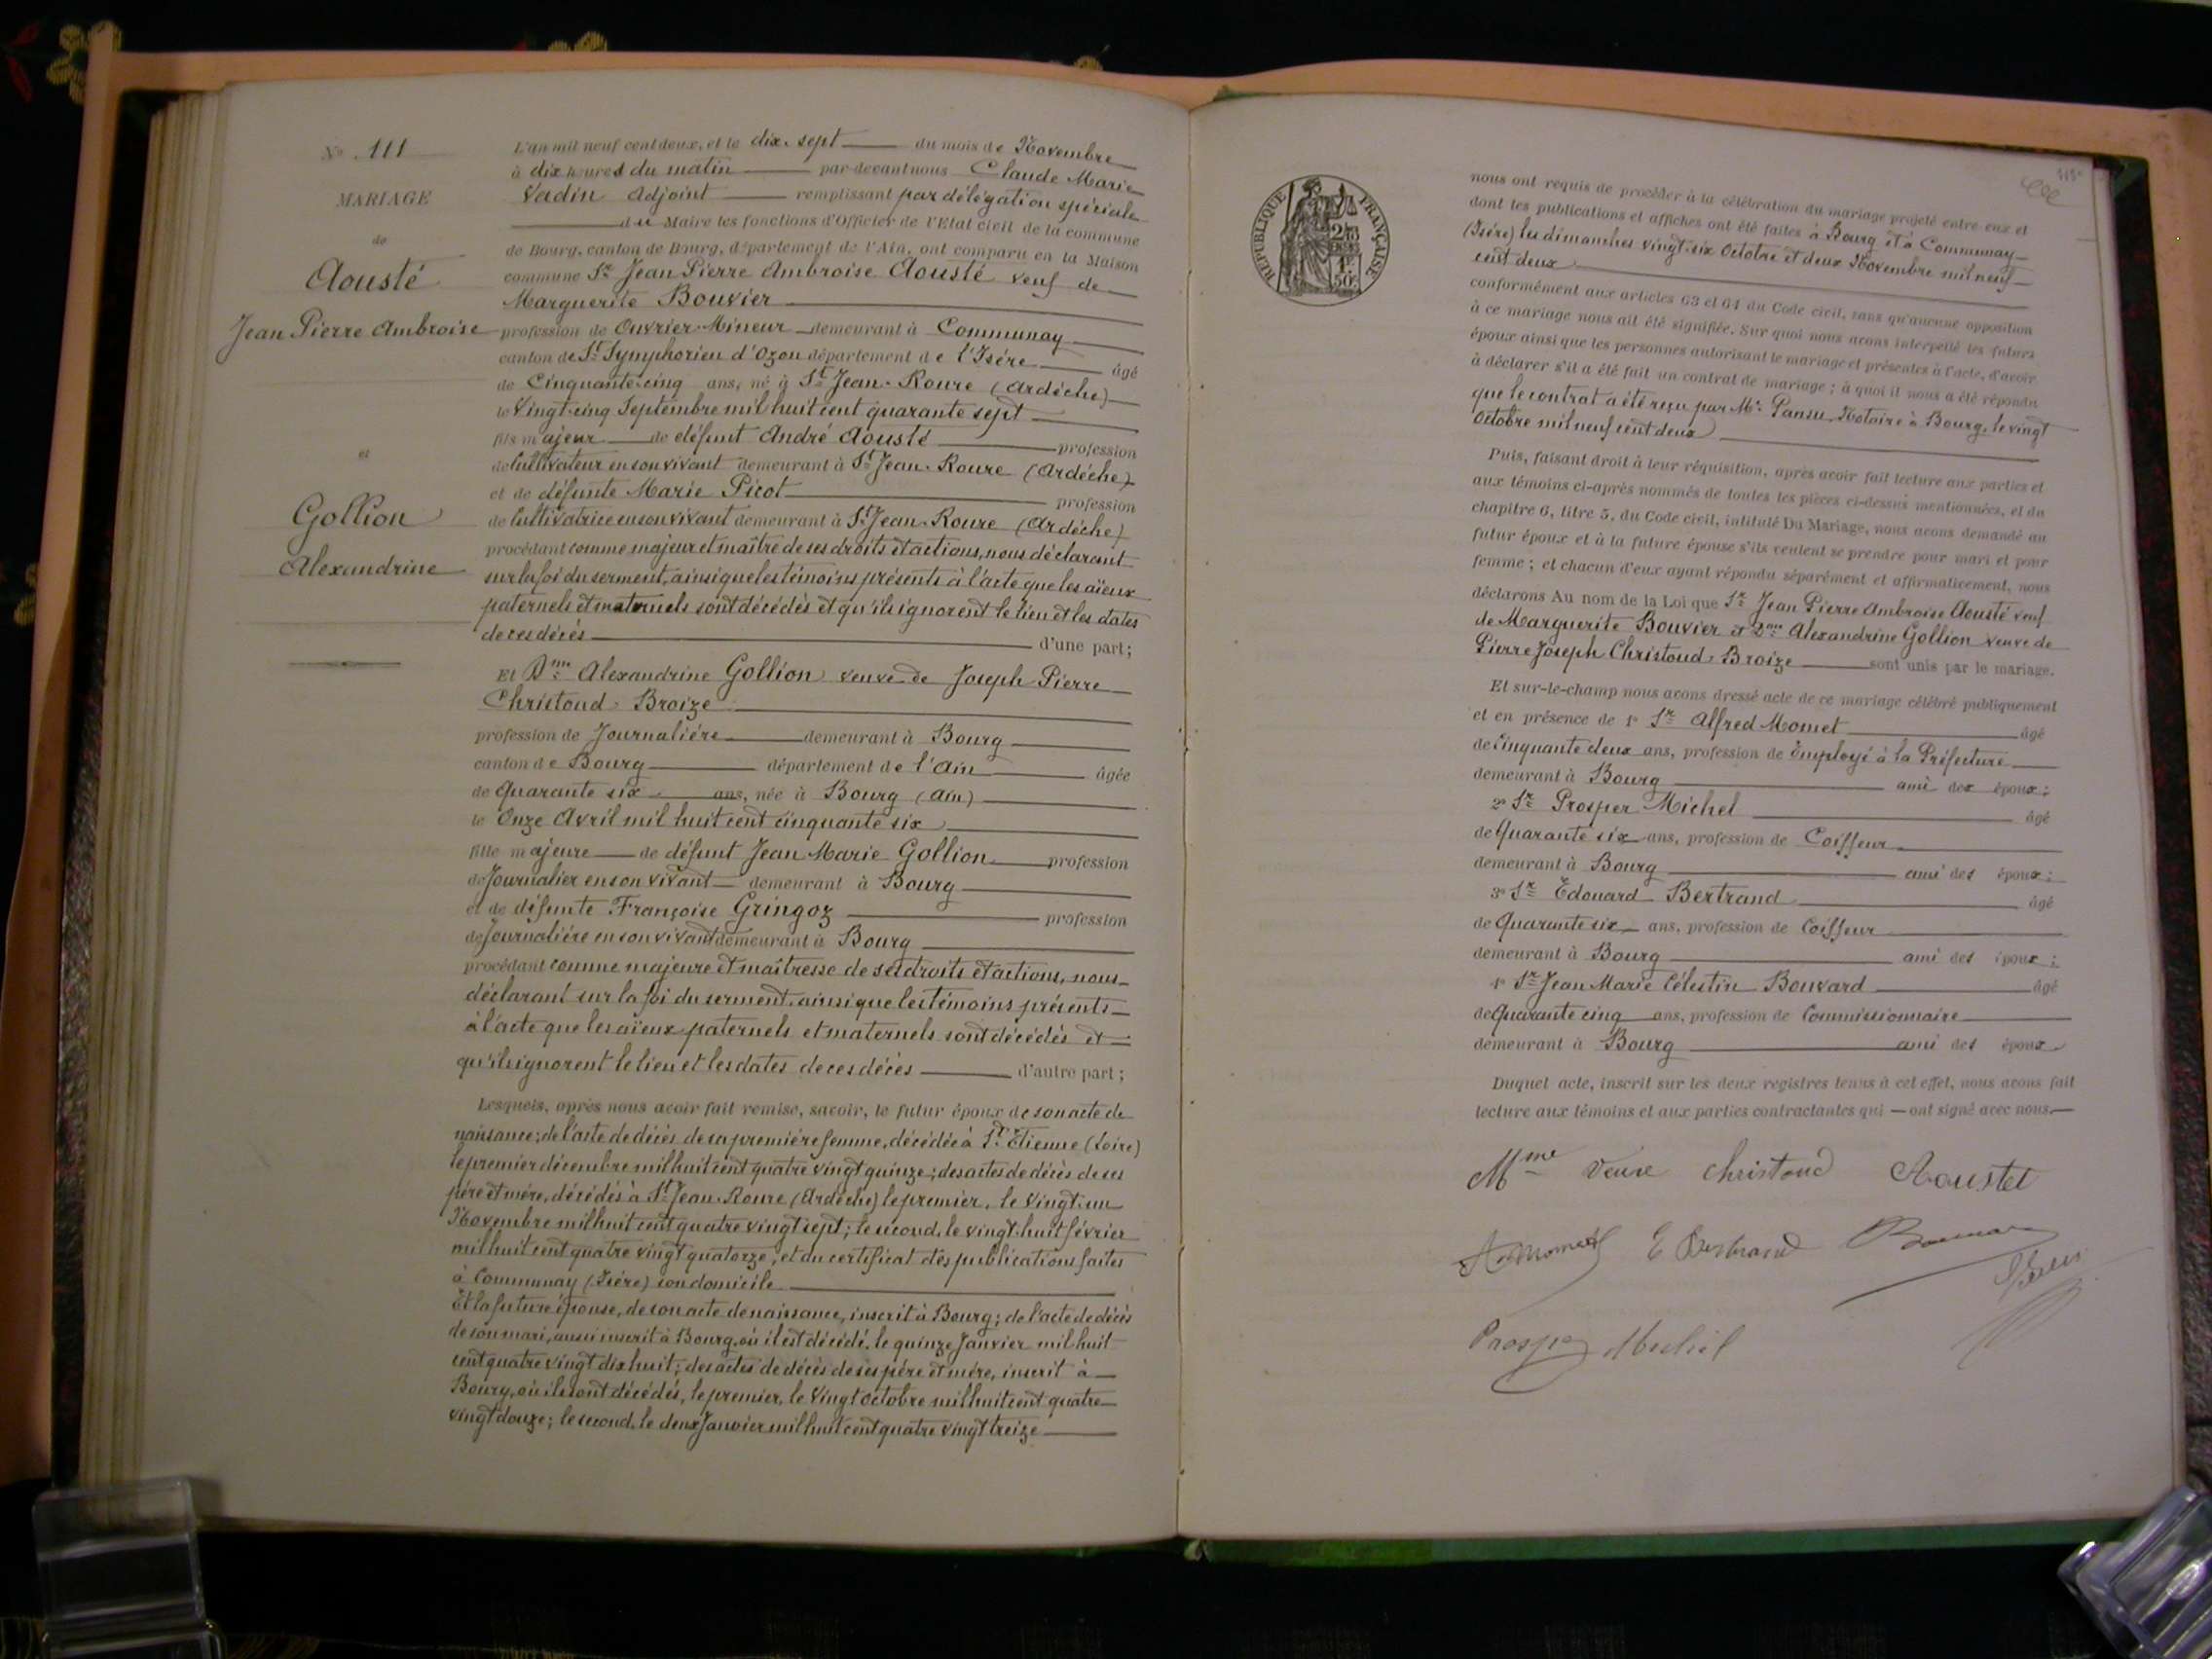 No 111
MARIAGE
de
Aousté
Jean Pierre Ambroise
et
Gollion
Alexandrine
L'an mil neuf cent deux, et le dix-sept du mois de Novembre
à dix heures du matin par-devant nous Claude Marie
Vadin Adjoint remplissant par délégation spéciale
du Maire les fonctions d'Officier de l'Etat civil de la commune
de Bourg, canton de Bourg, département de l'Ain, ont comparu en la Maison
commune Sr Jean Pierre Ambroise Aousté veuf de
Marguerite Bouvier
profession de Ouvrier-Mineur demeurant à Communay
canton de St Symphorien d'Ozon département de l'Isére âgé
de Cinquante-cinq ans, né à St Jean-Roure (Ardèche)
le Vingt-cinq Septembre mil huit cent quarante sept
fils majeur de défunt André Aousté profession
de Cultivateur en son vivant demeurant à St Jean-Roure (Ardéche)
et de défunte Marie Picot profession
de Cultivatrice en son vivant demeurant à St Jean-Roure (Ardéche)
procédant comme majeur et maître de ses droits et actions, nous déclarant
sur la foi du serment, ainsi que les témoins présents à l'acte que les aïeux
paternels et maternels sont décédés et qu'ils ignorent le lieu et les dates
de ces décés d'une part;
Et Dme Alexandrine Gollion veuve de Joseph Pierre
Christoud-Broize
profession de Journalière demeurant à Bourg
canton de Bourg département de l'Ain âgée
de Quarante six ans, née à Bourg (Ain)
le Onze Avril mil huit cent cinquante six
fille majeure de défunt Jean Marie Gollion profession
de Journalier en son vivant demeurant à Bourg
et de défunte Françoise Gringoz profession
de Journalière en son vivant demeurant à Bourg
procédant comme majeure et maîtresse de ses droits et actions, nous
déclarant sur la foi du serment, ainsi que les témoins présents
à l'acte que les aïeux paternels et maternels sont décédés et
qu'ils ignorent le lieu et les dates de ces décès d'autre part;
Lesquels, après nous avoir fait remise, savoir, le futur époux de son acte de
naissance; de l'acte de décès de sa première femme, décédée à St Etienne (Loire)
le premier décembre mil huit cent quatre vingt quinze; des actes de décès de ses
père et mère, décédés à St Jean-Roure (Ardèche) le premier, le Vingt-un
Novembre mil huit cent quatre vingt sept; le second, le vingt-huit février
mil huit cent quatre vingt quatorze, et du certificat des publications faites
à Communay (Isère) son domicile
Et la future épouse, de son acte de naissance, inscrit à Bourg; de l'acte de décès
de son mari, aussi inscrit à Bourg, où il est décédé, le quinze Janvier mil huit
cent quatre vingt dix huit; des actes de décès de ses père et mère, inscrit à
Bourg, où ils sont décédés, le premier, le Vingt Octobre mil huit cent quatre
vingt douze; le second, le deux Janvier mil huit cent quatre vingt treize
REPUBLIQUE FRANÇAISE
nous ont requis de procéder à la célébration du mariage projeté entre eux et
dont les publications et affiches ont été faites à Bourg et à Communay
(Isére) les dimanches vingt-six Octobre et deux Novembre mil neuf
cent deux
conformément aux articles 63 et 64 du Code civil, sans qu'aucune opposition
à ce mariage nous ait été signifiée. Sur quoi nous avons interpellé les futurs
époux ainsi que les personnes autorisant le mariage et présentes à l'acte, d'avoir
à déclarer s'il a été fait un contrat de mariage; à quoi il nous a été répondu
que le contrat a été reçu par Me Pansu, Notaire à Bourg, le vingt
Octobre mil neuf cent deux
Puis, faisant droit à leur réquisition, après avoir fait lecture aux parties et
aux témoins ci-après nommés de toutes les pièces ci-dessus mentionnées, et du
chapitre 6, titre 5, du Code civil, intitulé Du Mariage, nous avons demandé au
futur époux et à la future épouse s'ils veulent se prendre pour mari et pour
femme; et chacun d'eux ayant répondu séparément et affirmativement, nous
déclarons Au nom de la Loi que Sr Jean Pierre Ambroise Aousté veuf
de Marguerite Bouvier et Dme Alexandrine Gollion veuve de
Pierre Joseph Christoud-Broize sont unis par le mariage.
Et sur-le-champ nous avons dressé acte de ce mariage célébré publiquement
et en présence de 1o Sr Alfred Momet âgé
de Cinquante deux ans, profession de Employé à la Préfecture
demeurant à Bourg ami des époux;
2o Sr Prosper Michel âgé
de Quarante six ans, profession de Coiffeur
demeurant à Bourg ami des époux;
3o Sr Edouard Bertrand âgé
de Quarante six ans, profession de Coiffeur
demeurant à Bourg ami des époux;
4o Sr Jean Marie Célestin Bouvard âgé
de Quarante cinq ans, profession de Commissionnaire
demeurant à Bourg ami des époux
Duquel acte, inscrit sur les deux registres tenus à cet effet, nous avons fait
lecture aux témoins et aux parties contractantes qui ont signé avec nous
Mme Veuve Christoud Aoustet
A. Momet E Bertrand
Prosper Michel